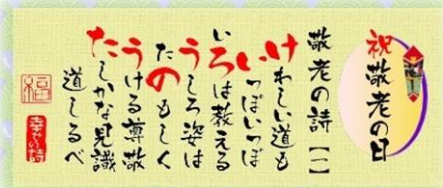 祝敬老の日
敬老の詩【一】
けわしい道も
いっぽいっぽ
いろは教える
うしろ姿は
たのもしく
うける尊敬
たしかな見識
道しるべ
福